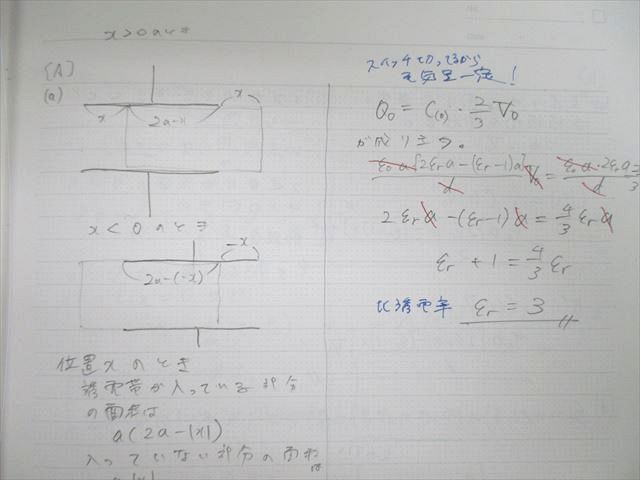 x>0のとき
[A]
(a)
x
x 2a-x
x<0のとき
-x
2a-(-x)
位置xのとき
誘電帯が入っている部分
の面積は
a(2a-|x|)
入っていない部分の面積は
a|x|
スイッチ切ってるから
電気量一定!
Q₀ = C₍₀₎・2/3 V₀
が成り立つ。
ε₀a[2εᵣa-(εᵣ-1)a]/d V₀ = ε₀a・2εᵣa/d 2/3
2εᵣa-(εᵣ-1)a = 4/3 εᵣa
εᵣ+1 = 4/3 εᵣ
比誘電率 εᵣ = 3